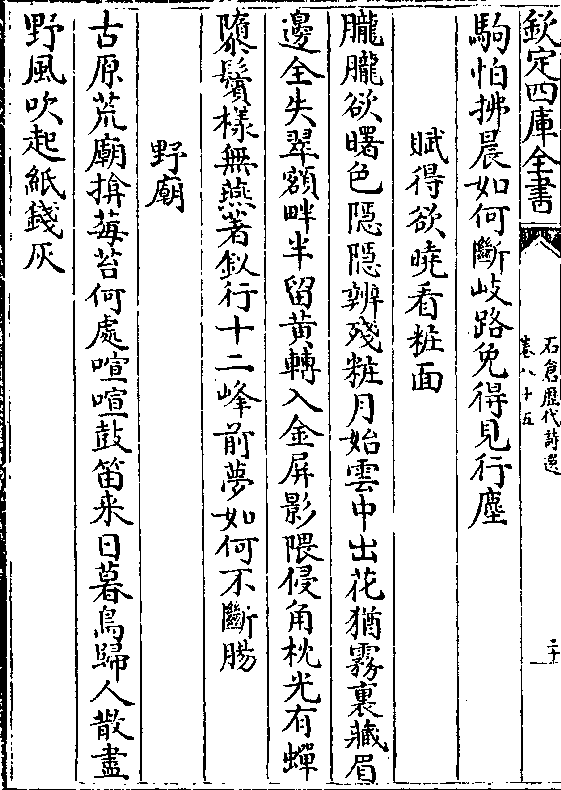 欽定四庫全書
石倉歴代詩選
卷八十五
二十
駒怕拂晨如何斷岐路免得見行塵
賦得欲曉看粧面
朧朧欲曙色隠隠辨殘粧月始雲中出花猶霧裏藏眉
邊全失翠額畔半留黄轉入金屏影隈侵角枕光有蟬
隳鬢樣無燕著釵行十二峰前夢如何不斷腸
野廟
古原荒廟揜莓苔何處喧喧鼓笛来日暮鳥歸人散盡
野風吹起紙錢灰